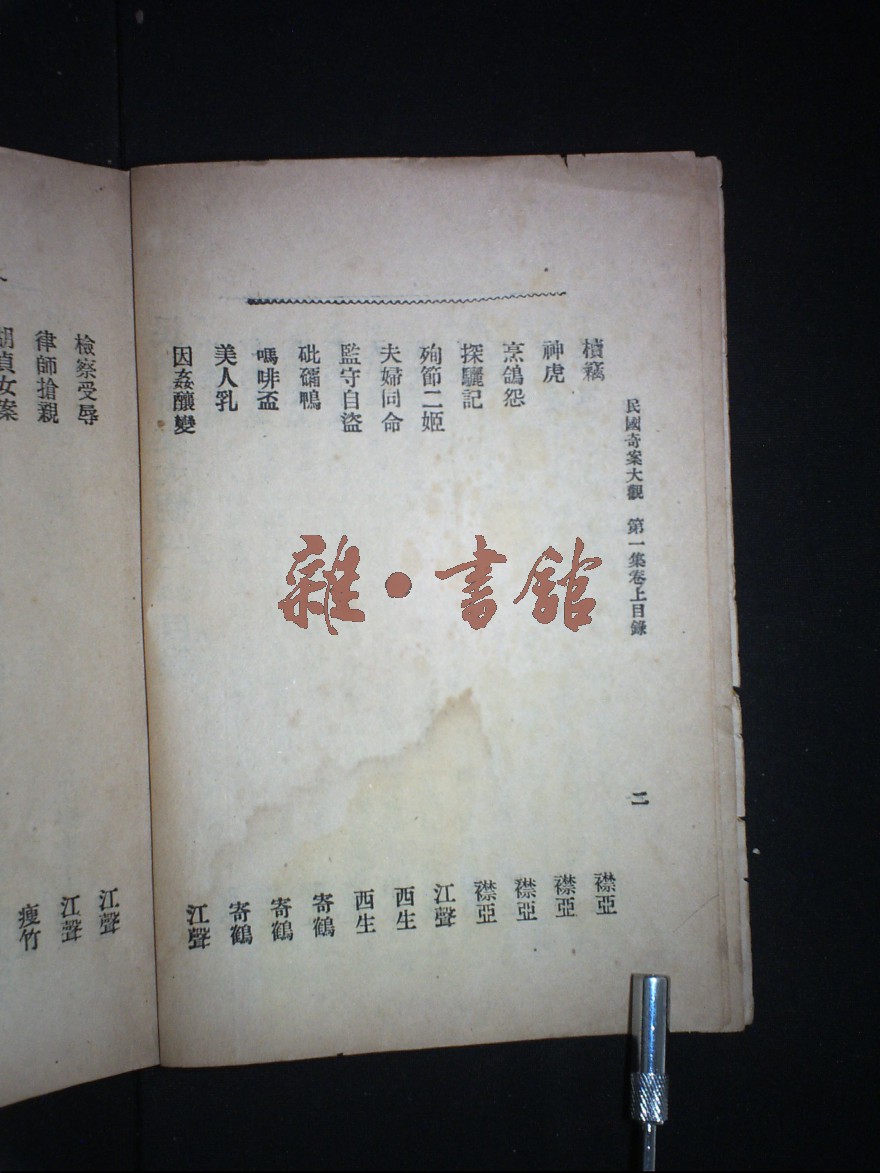 民國奇案大觀 第一集卷上目錄 二
櫝竊 襟亞
神虎 襟亞
烹鴿怨 襟亞
探驪記 襟亞
殉節二姬 江聲
夫婦同命 西生
監守自盜 西生
砒礵鴨 寄鶴
嗎啡盃 寄鶴
美人乳 寄鶴
因姦釀變 江聲
檢察受辱 江聲
律師搶親 江聲
貞女案 瘦竹
雜·書館